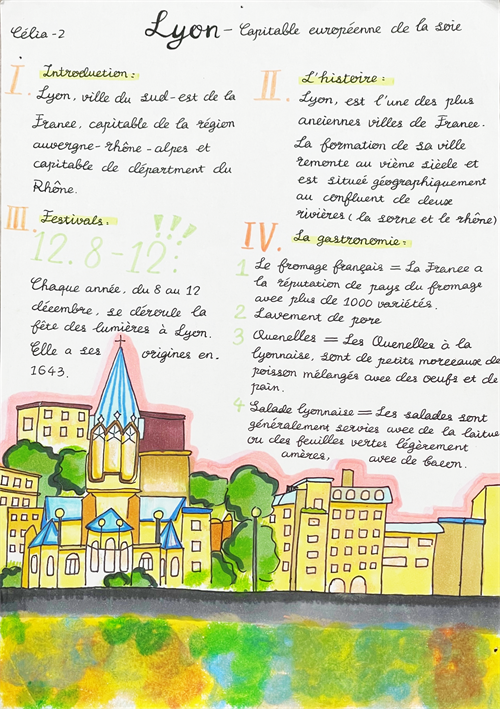 Célia - 2
Lyon - Capitable européenne de la soie
I. Introduction :
Lyon, ville du sud-est de la
France, capitable de la région
auvergne-rhône-alpes et
capitable de départment du
Rhône.
II. L'histoire :
Lyon, est l'une des plus
anciennes villes de France.
La formation de sa ville
remonte au vième siècle et
est situeé géographiquement
au confluent de deux
rivières (la sorne et le rhône)
III. Festivals.
12. 8-12 : !!!
Chaque année, du 8 au 12
décembre, se déroule la
fête des lumières à Lyon.
Elle a ses origines en.
1643.
IV. La gastronomie :
1 Le fromage français = La France a
la réputation de pays du fromage
avec plus de 1000 variétés.
2 Lavement de porc
3 Quenelles = Les Quenelles à la
lyonnaise, sont de petits morceaux de
poisson mélangés avec des oeufs et de
pain.
4 Salade lyonnaise = Les salades sont
généralement servies avec de la laitue
ou des feuilles vertes légèrement
amères, avec de bacon.